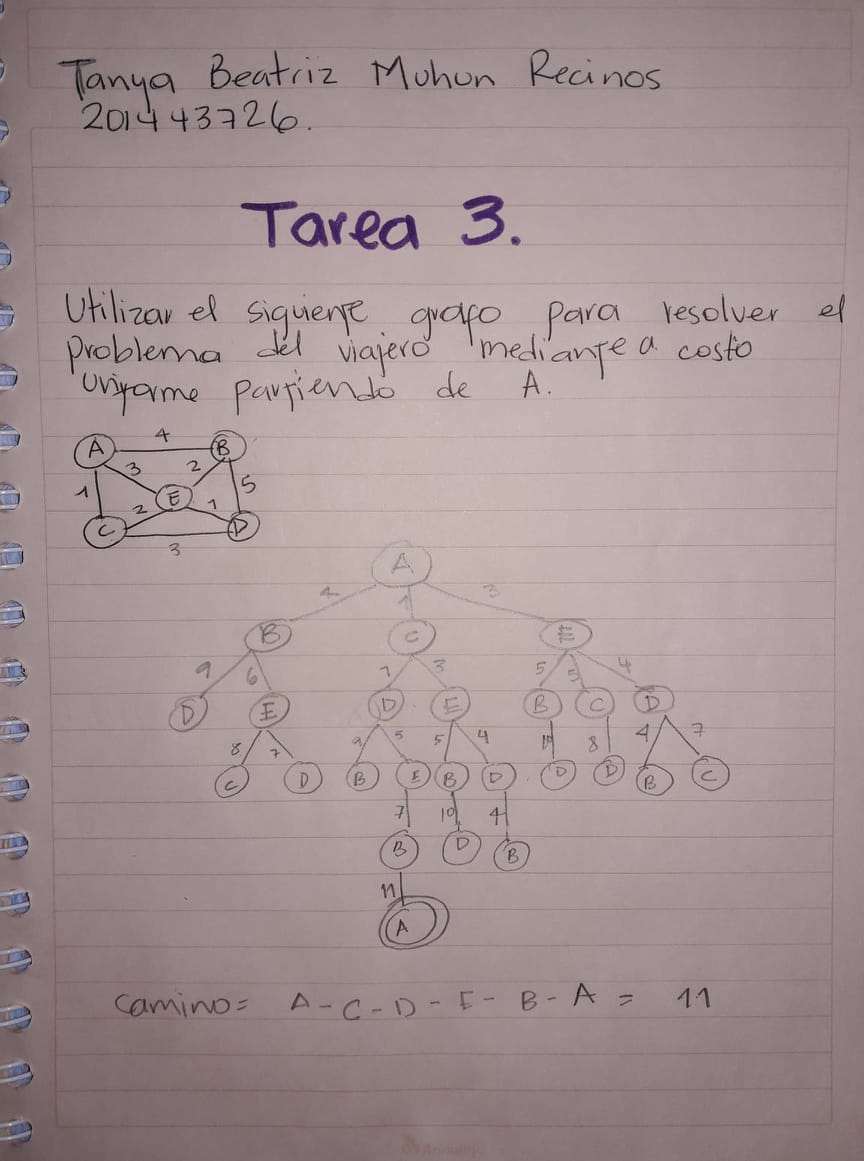 Tanya Beatriz Muhun Recinos
201443726.
Tarea 3.
Utilizar el siguiente grafo para resolver el
problema del viajero mediante a costo
Uniforme partiendo de A.
A 4 B
3 2
1 E 5
2 1
C D
3
A
4 1 3
B C E
9 6 7 3 5 5 4
D E D E B C D
8 7 9 5 5 4 8 4 7
C D B E B D D D B C
7 10 4
B D B
11
A
Camino= A-C-D-E-B-A = 11